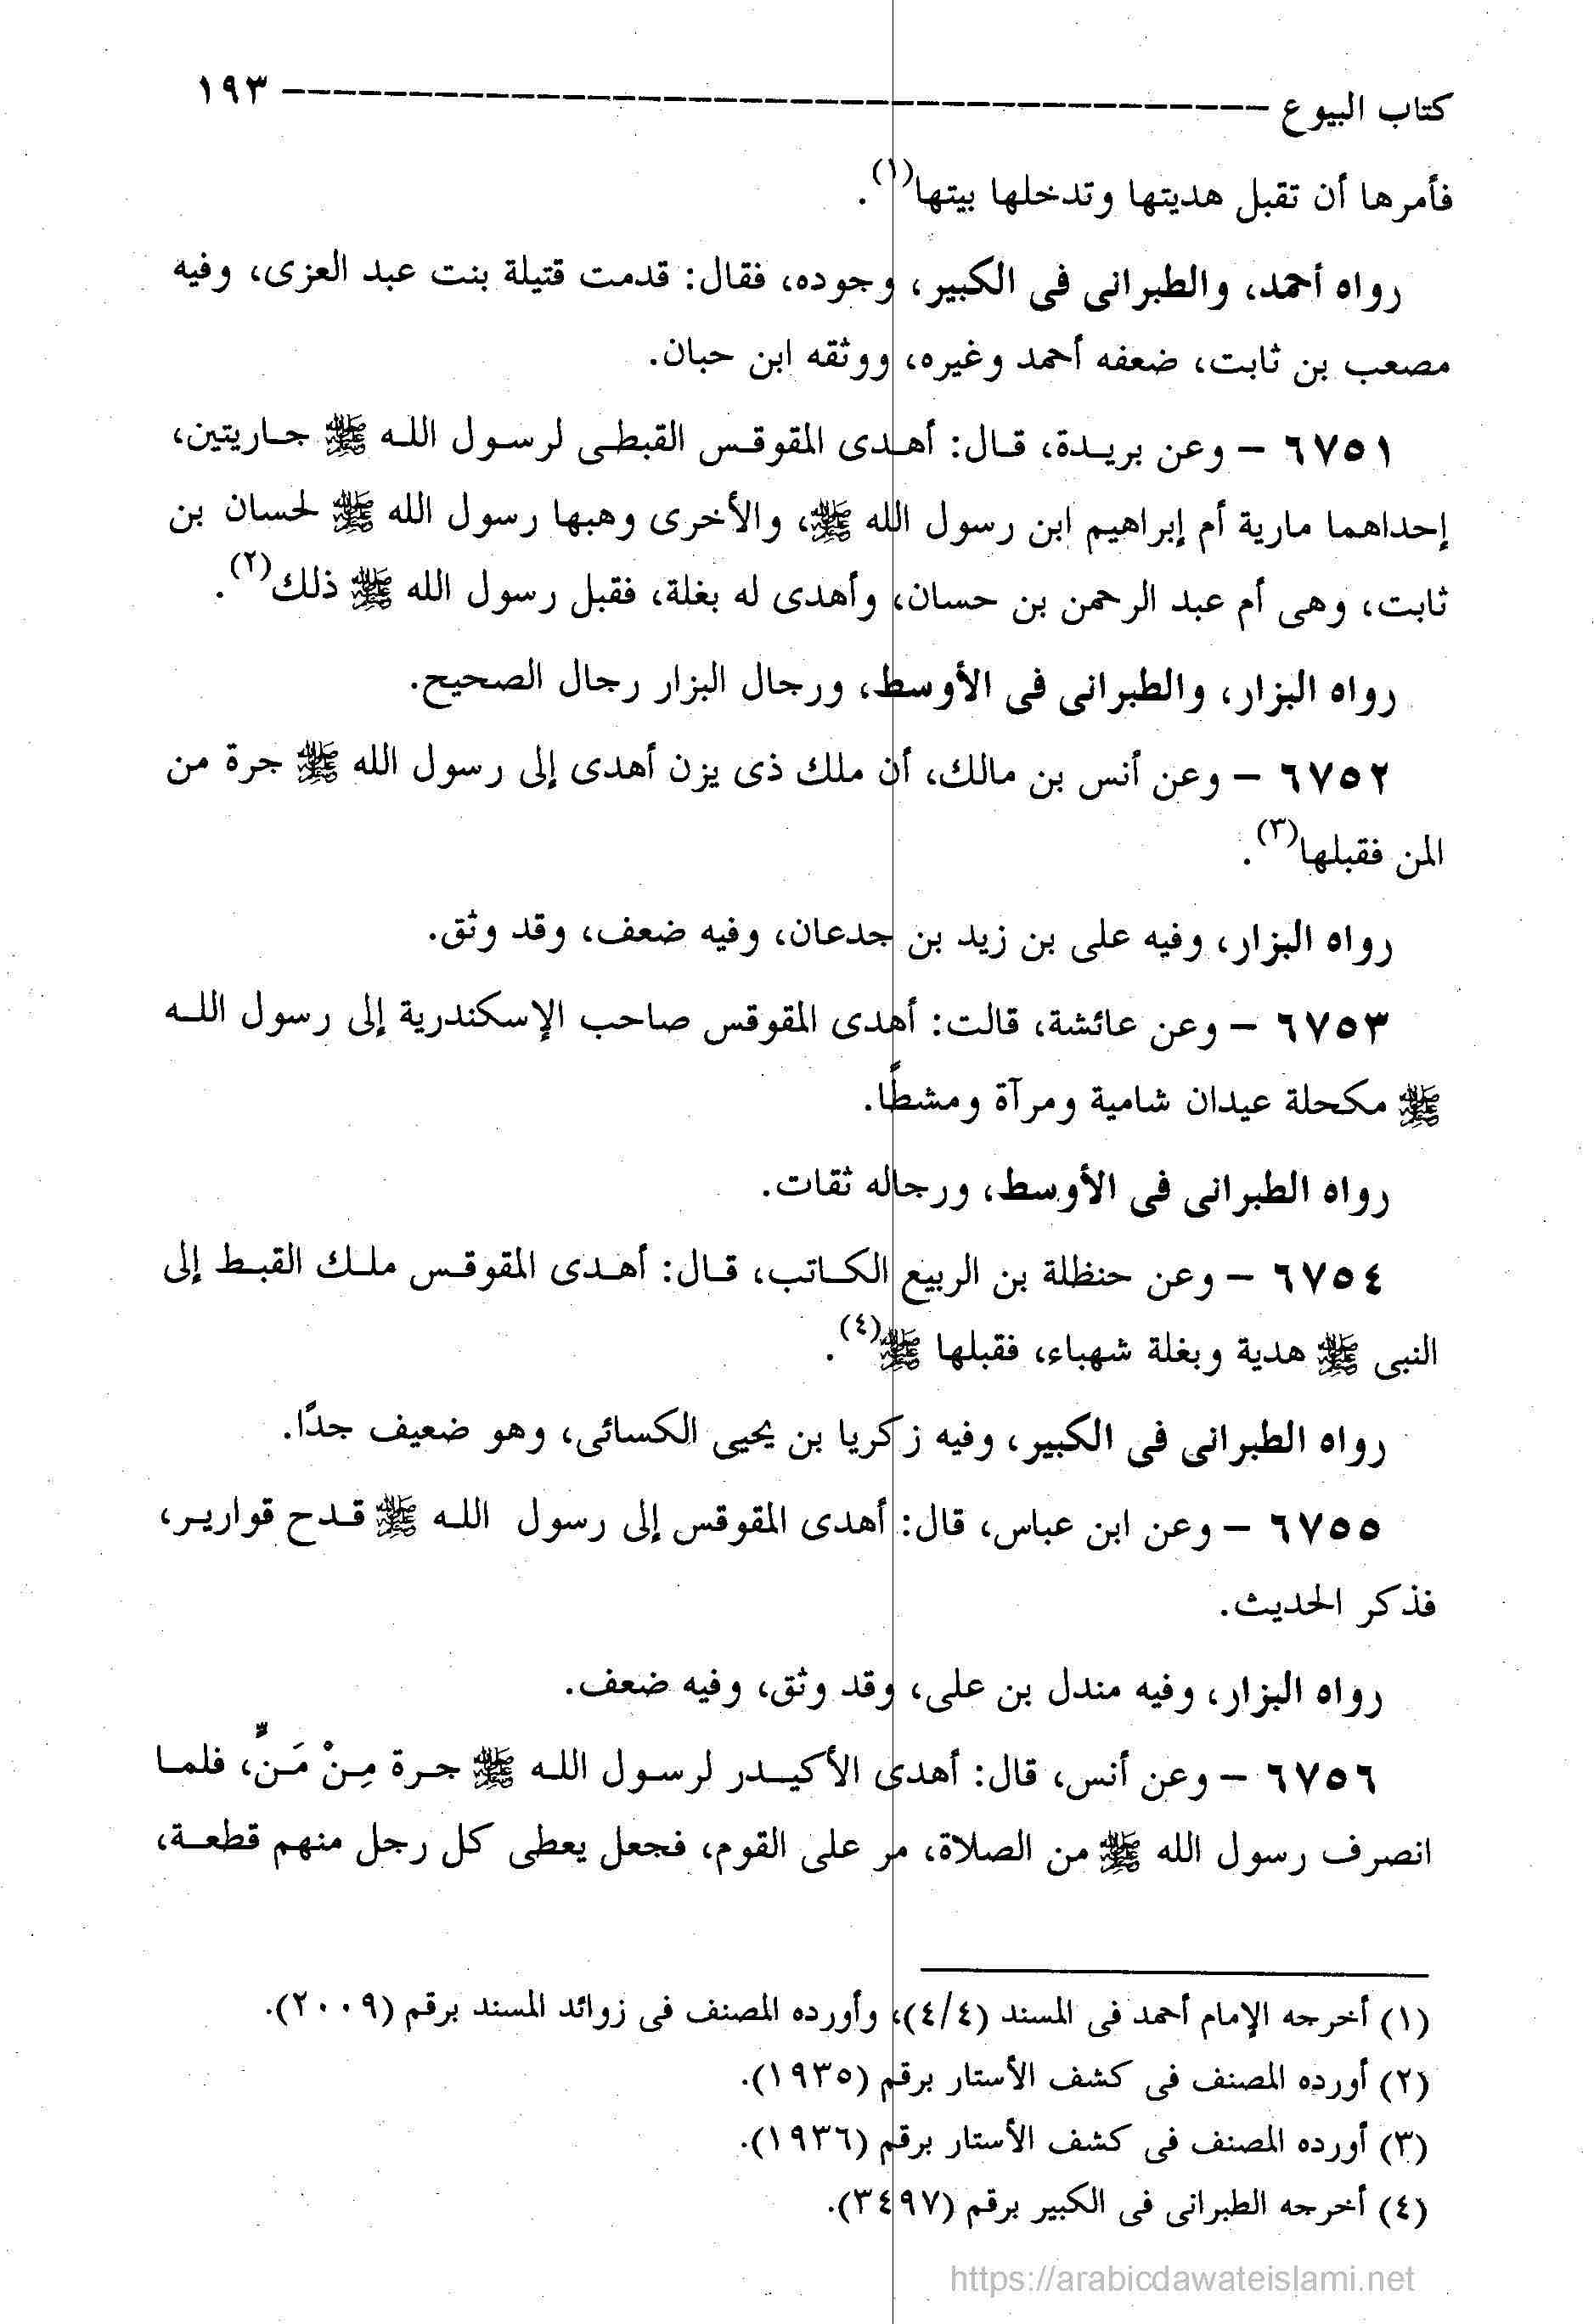 كتاب البيوع ---------------------------------------- ١٩٣
فأمرها أن تقبل هديتها وتدخلها بيتها(١).
رواه أحمد، والطبرانى فى الكبير، وجوده، فقال: قدمت قتيلة بنت عبد العزى، وفيه
مصعب بن ثابت، ضعفه أحمد وغيره، ووثقه ابن حبان.
٦٧٥١ – وعن بريدة، قال: أهدى المقوقس القبطى لرسول الله ﷺ جاريتين،
إحداهما مارية أم إبراهيم ابن رسول الله ﷺ، والأخرى وهبها رسول الله ﷺ لحسان بن
ثابت، وهى أم عبد الرحمن بن حسان، وأهدى له بغلة، فقبل رسول الله ﷺ ذلك(٢).
رواه البزار، والطبرانى فى الأوسط، ورجال البزار رجال الصحيح.
٦٧٥٢ – وعن أنس بن مالك، أن ملك ذى يزن أهدى إلى رسول الله ﷺ جرة من
المن فقبلها(٣).
رواه البزار، وفيه على بن زيد بن جدعان، وفيه ضعف، وقد وثق.
٦٧٥٣ – وعن عائشة، قالت: أهدى المقوقس صاحب الإسكندرية إلى رسول الله
ﷺ مكحلة عيدان شامية ومرآة ومشطًا.
رواه الطبرانى فى الأوسط، ورجاله ثقات.
٦٧٥٤ – وعن حنظلة بن الربيع الكاتب، قال: أهدى المقوقس ملك القبط إلى
النبى ﷺ هدية وبغلة شهباء، فقبلها ﷺ(٤).
رواه الطبرانى فى الكبير، وفيه زكريا بن يحيى الكسائى، وهو ضعيف جدًا.
٦٧٥٥ – وعن ابن عباس، قال: أهدى المقوقس إلى رسول الله ﷺ قدح قوارير،
فذكر الحديث.
رواه البزار، وفيه مندل بن على، وقد وثق، وفيه ضعف.
٦٧٥٦ – وعن أنس، قال: أهدى الأكيدر لرسول الله ﷺ جرة مِنْ مَنٍّ، فلما
انصرف رسول الله ﷺ من الصلاة، مر على القوم، فجعل يعطى كل رجل منهم قطعة،
(١) أخرجه الإمام أحمد فى المسند (٤/٤)، وأورده المصنف فى زوائد المسند برقم (٢٠٠٩).
(٢) أورده المصنف فى كشف الأستار برقم (١٩٣٥).
(٣) أورده المصنف فى كشف الأستار برقم (١٩٣٦).
(٤) أخرجه الطبرانى فى الكبير برقم (٣٤٩٧).
https://arabicdawateislami.net